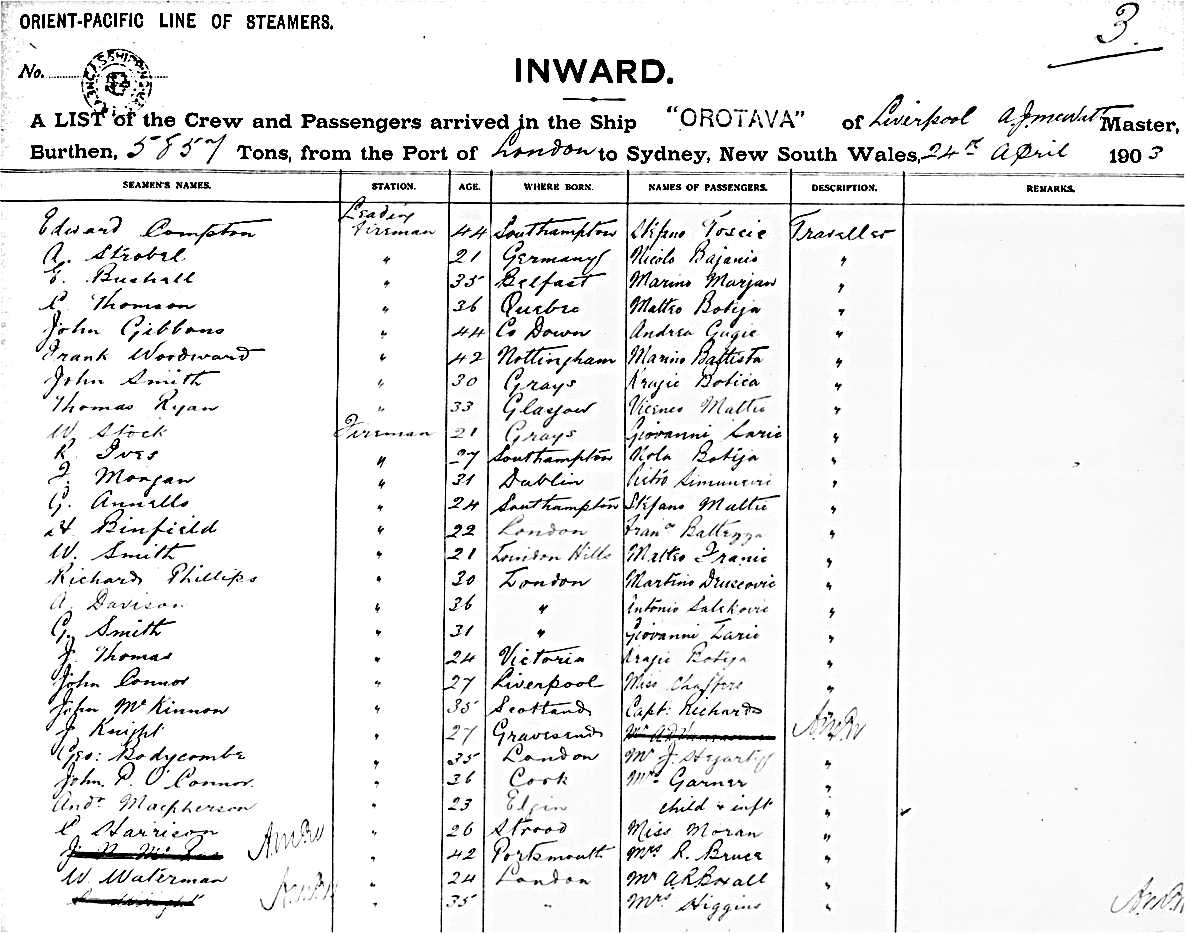 ORIENT-PACIFIC LINE OF STEAMERS.
3.
No.
INWARD.
A LIST of the Crew and Passengers arrived in the Ship "OROTAVA" of Liverpool Master,
Burthen, 5857 Tons, from the Port of London to Sydney, New South Wales, 24th April 1903
SEAMEN'S NAMES. STATION. AGE. WHERE BORN. NAMES OF PASSENGERS. DESCRIPTION. REMARKS.
Leading
Edward Compton Fireman 44 Southampton Stefano Toscic Traveller
A. Strobel " 21 Germany Nicolo Bajanio "
E. Bushall " 35 Belfast Marino Marjan "
C Thomson " 36 Quebec Matteo Botija "
John Gibbons " 44 Co Down Andrea Gugic "
Frank Woodward " 42 Nottingham Marino Battista "
John Smith " 30 Grays Krajic Botica "
Thomas Ryan " 33 Glasgow Matteo "
W Stock Fireman 21 Grays Giovanni Laric "
R Ives " 27 Southampton Kola Botija "
F. Morgan " 31 Dublin Pietro "
G. Annells " 24 Southampton Stefano Mattio "
H Binfield " 22 London "
W. Smith " 21 Hills Matteo Franic "
Richard Phillips " 30 London Martino "
A Davison " 36 " Antonio "
G. Smith " 31 " Giovanni Laric "
J. Thomas " 24 Victoria Krajic Botija "
John Connor " 27 Liverpool Miss "
John McKinnon " 35 Scotland Capt: Richards "
J Knight " 27 Gravesend
Geo: Bodycombe " 35 London Mr J. "
John P. O'Connor " 36 Cork Mrs Garner "
Andw Macpherson " 23 Elgin child & inft "
C Harrison " 26 Strood Miss Moran "
" 42 Portsmouth Mrs R. Bruce "
W Waterman " 24 London Mr A R Boxall "
" 35 " Mrs Higgins "